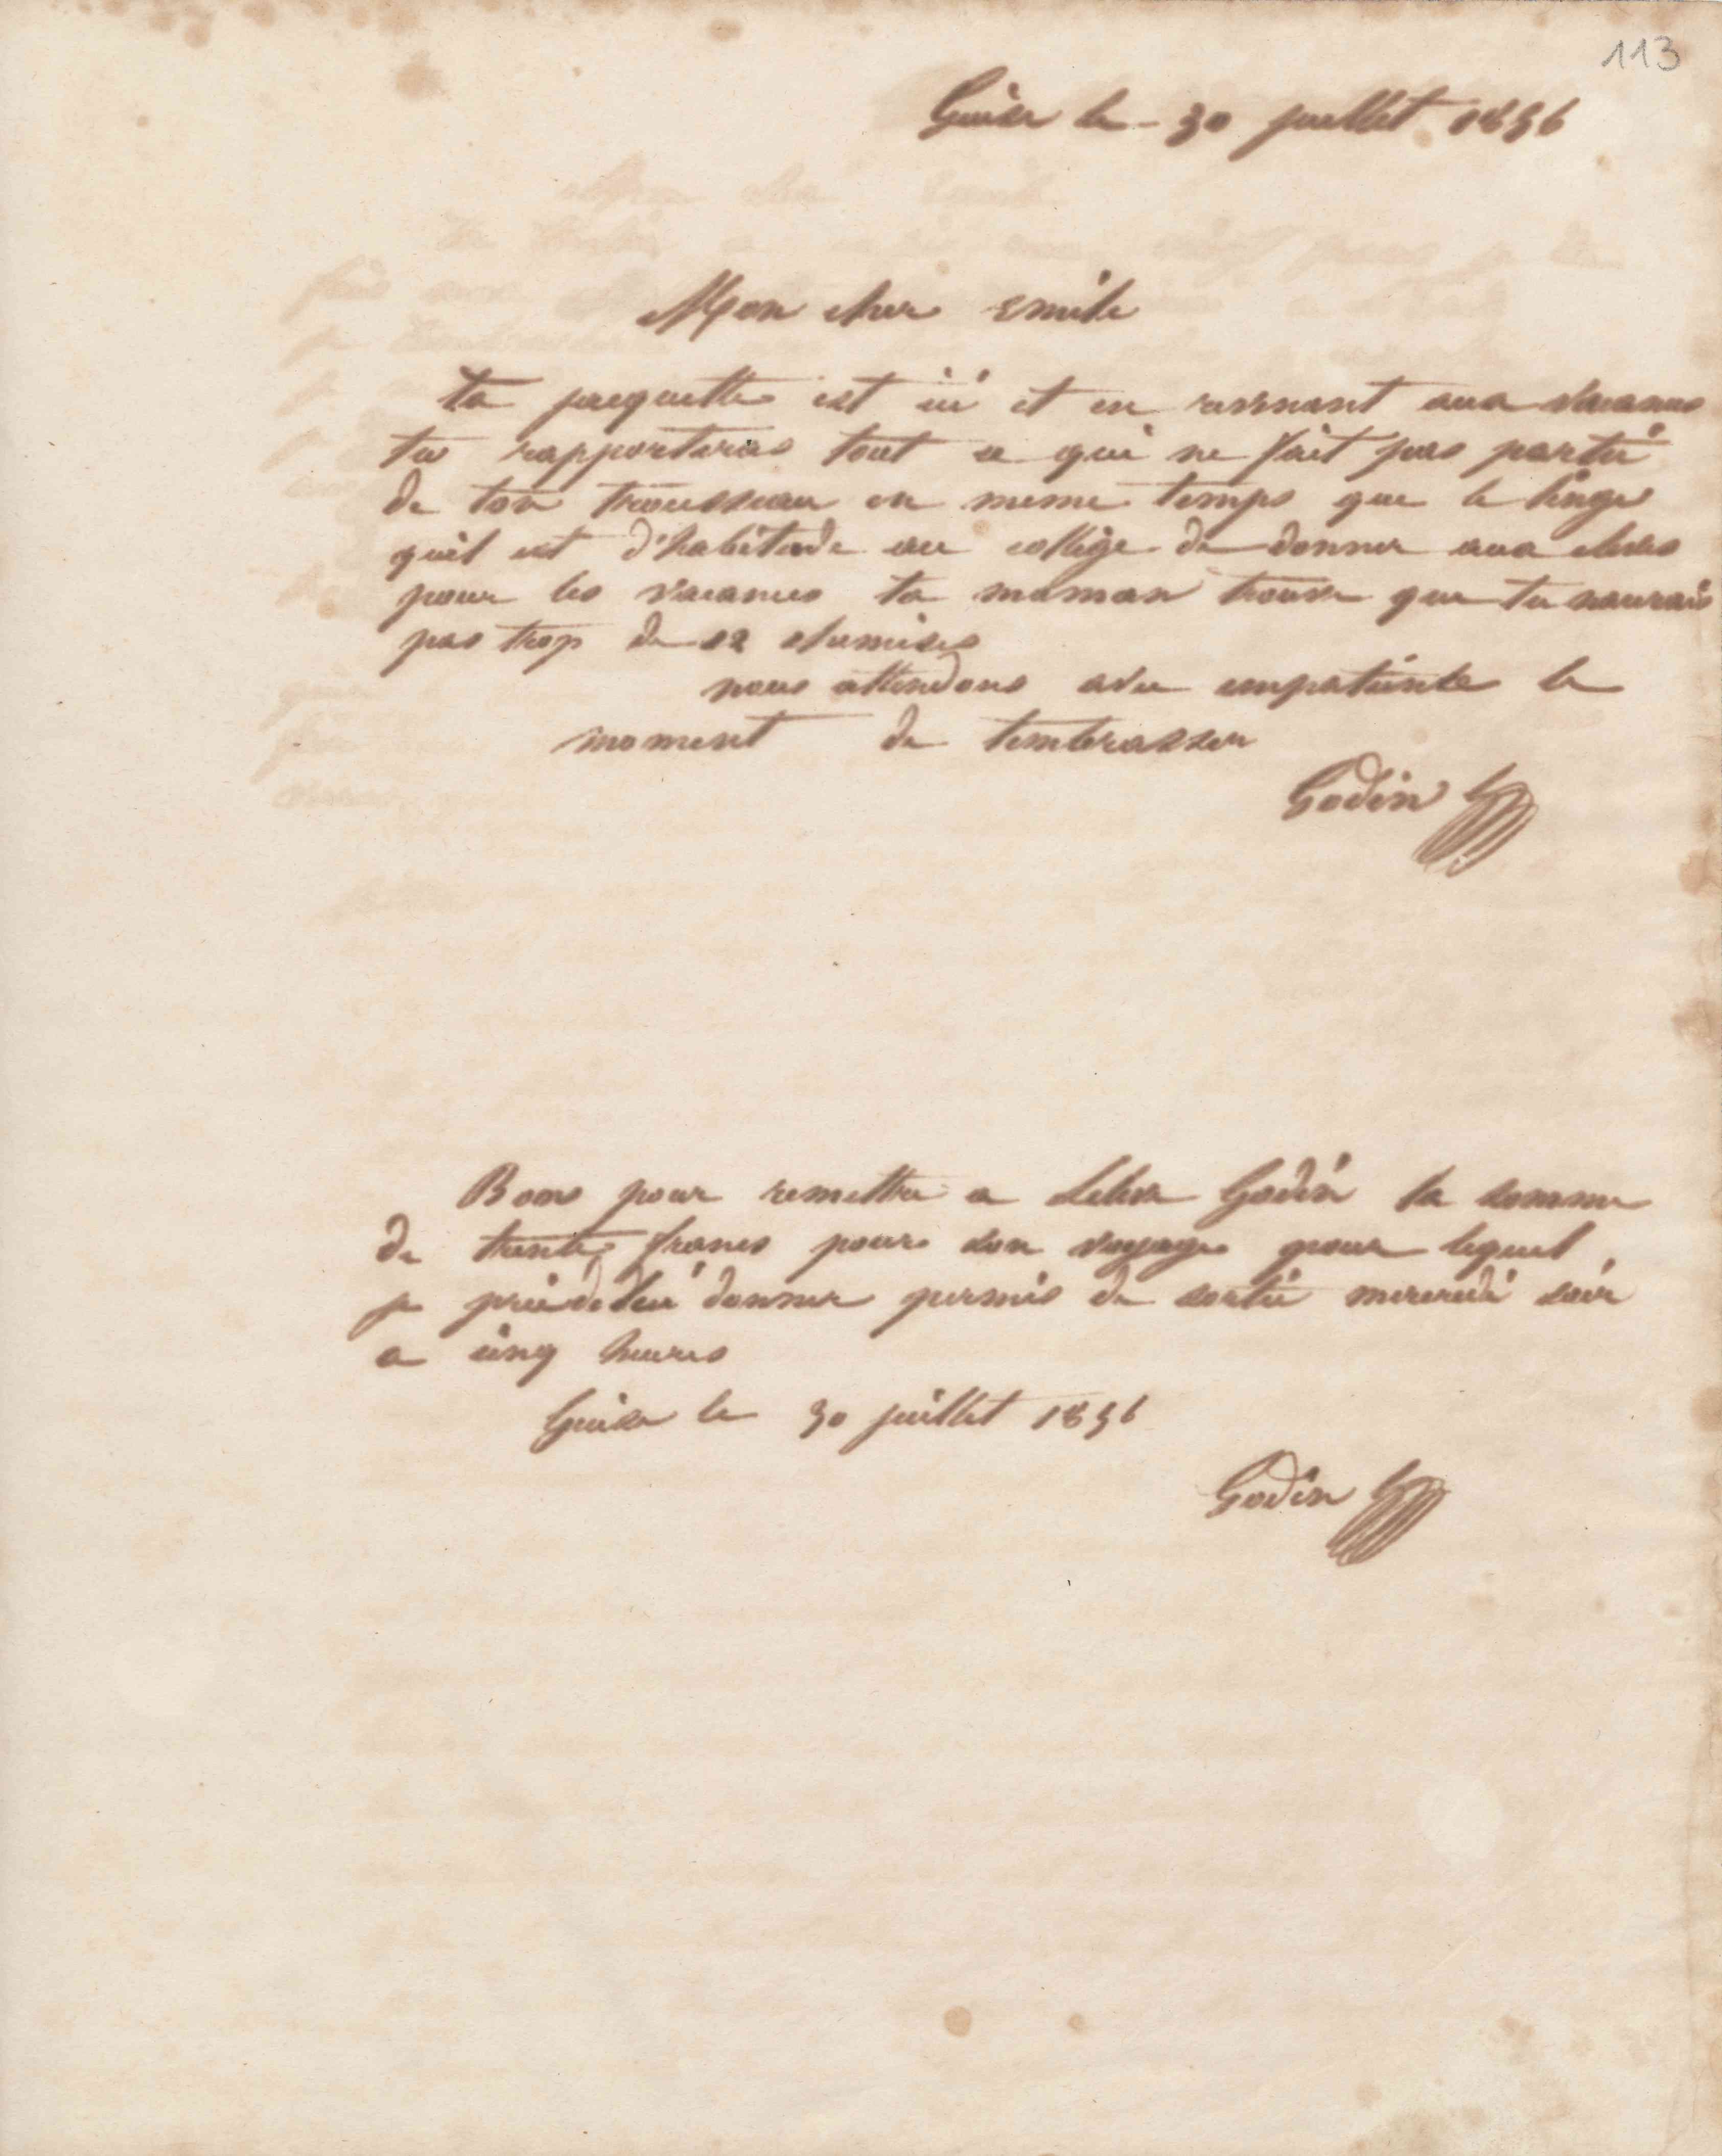 113
Guise le 30 juillet 1856
Mon cher Emile
ta jaquette est ici et en revenant aux vacances
tu rapporteras tout ce qui ne fait pas partie
de ton trousseau en meme temps que le linge
quil est d'habitude au collège de donner aux eleves
pour les vacances ta maman trouve que tu naurais
pas trop de 12 chemises
nous attendons avec empatiente le
moment de tembrasser
Godin
Bons pour remettre a Godin la somme
de trente francs pour son voyage pour lequel
je prie de lui donner permis de sortie mercredi soir
a cinq heures
Guise le 30 juillet 1856
Godin